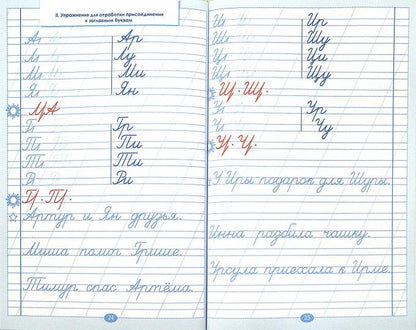 3. Упражнения для отработки присоединения
к заглавным буквам
Ар
Лу
Ми
Ян
Гр
Пи
Ти
Ви
Артур и Ян друзья.
Миша помог Грише.
Тимур спас Артёма.
24
Ир
Шу
Ци
Щу
Ур
Чу
У Иры подарок для Шуры.
Инна разбила чашку.
Урсула приехала к Ирме.
25